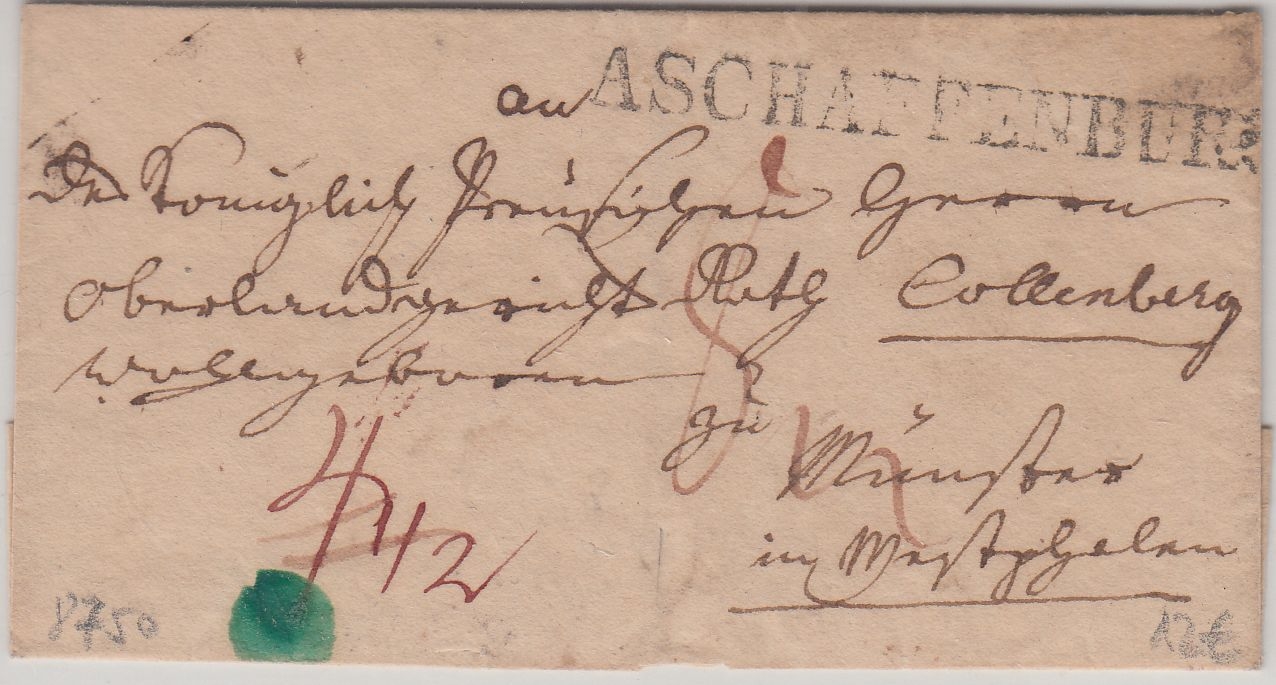 ASCHAFFENBURG
an
den Königlich Preußischen Herrn
Oberlandgericht Rath Collenberg
Wohlgeboren
zu
Münster
in Westphalen
4 1/2
8750
12€